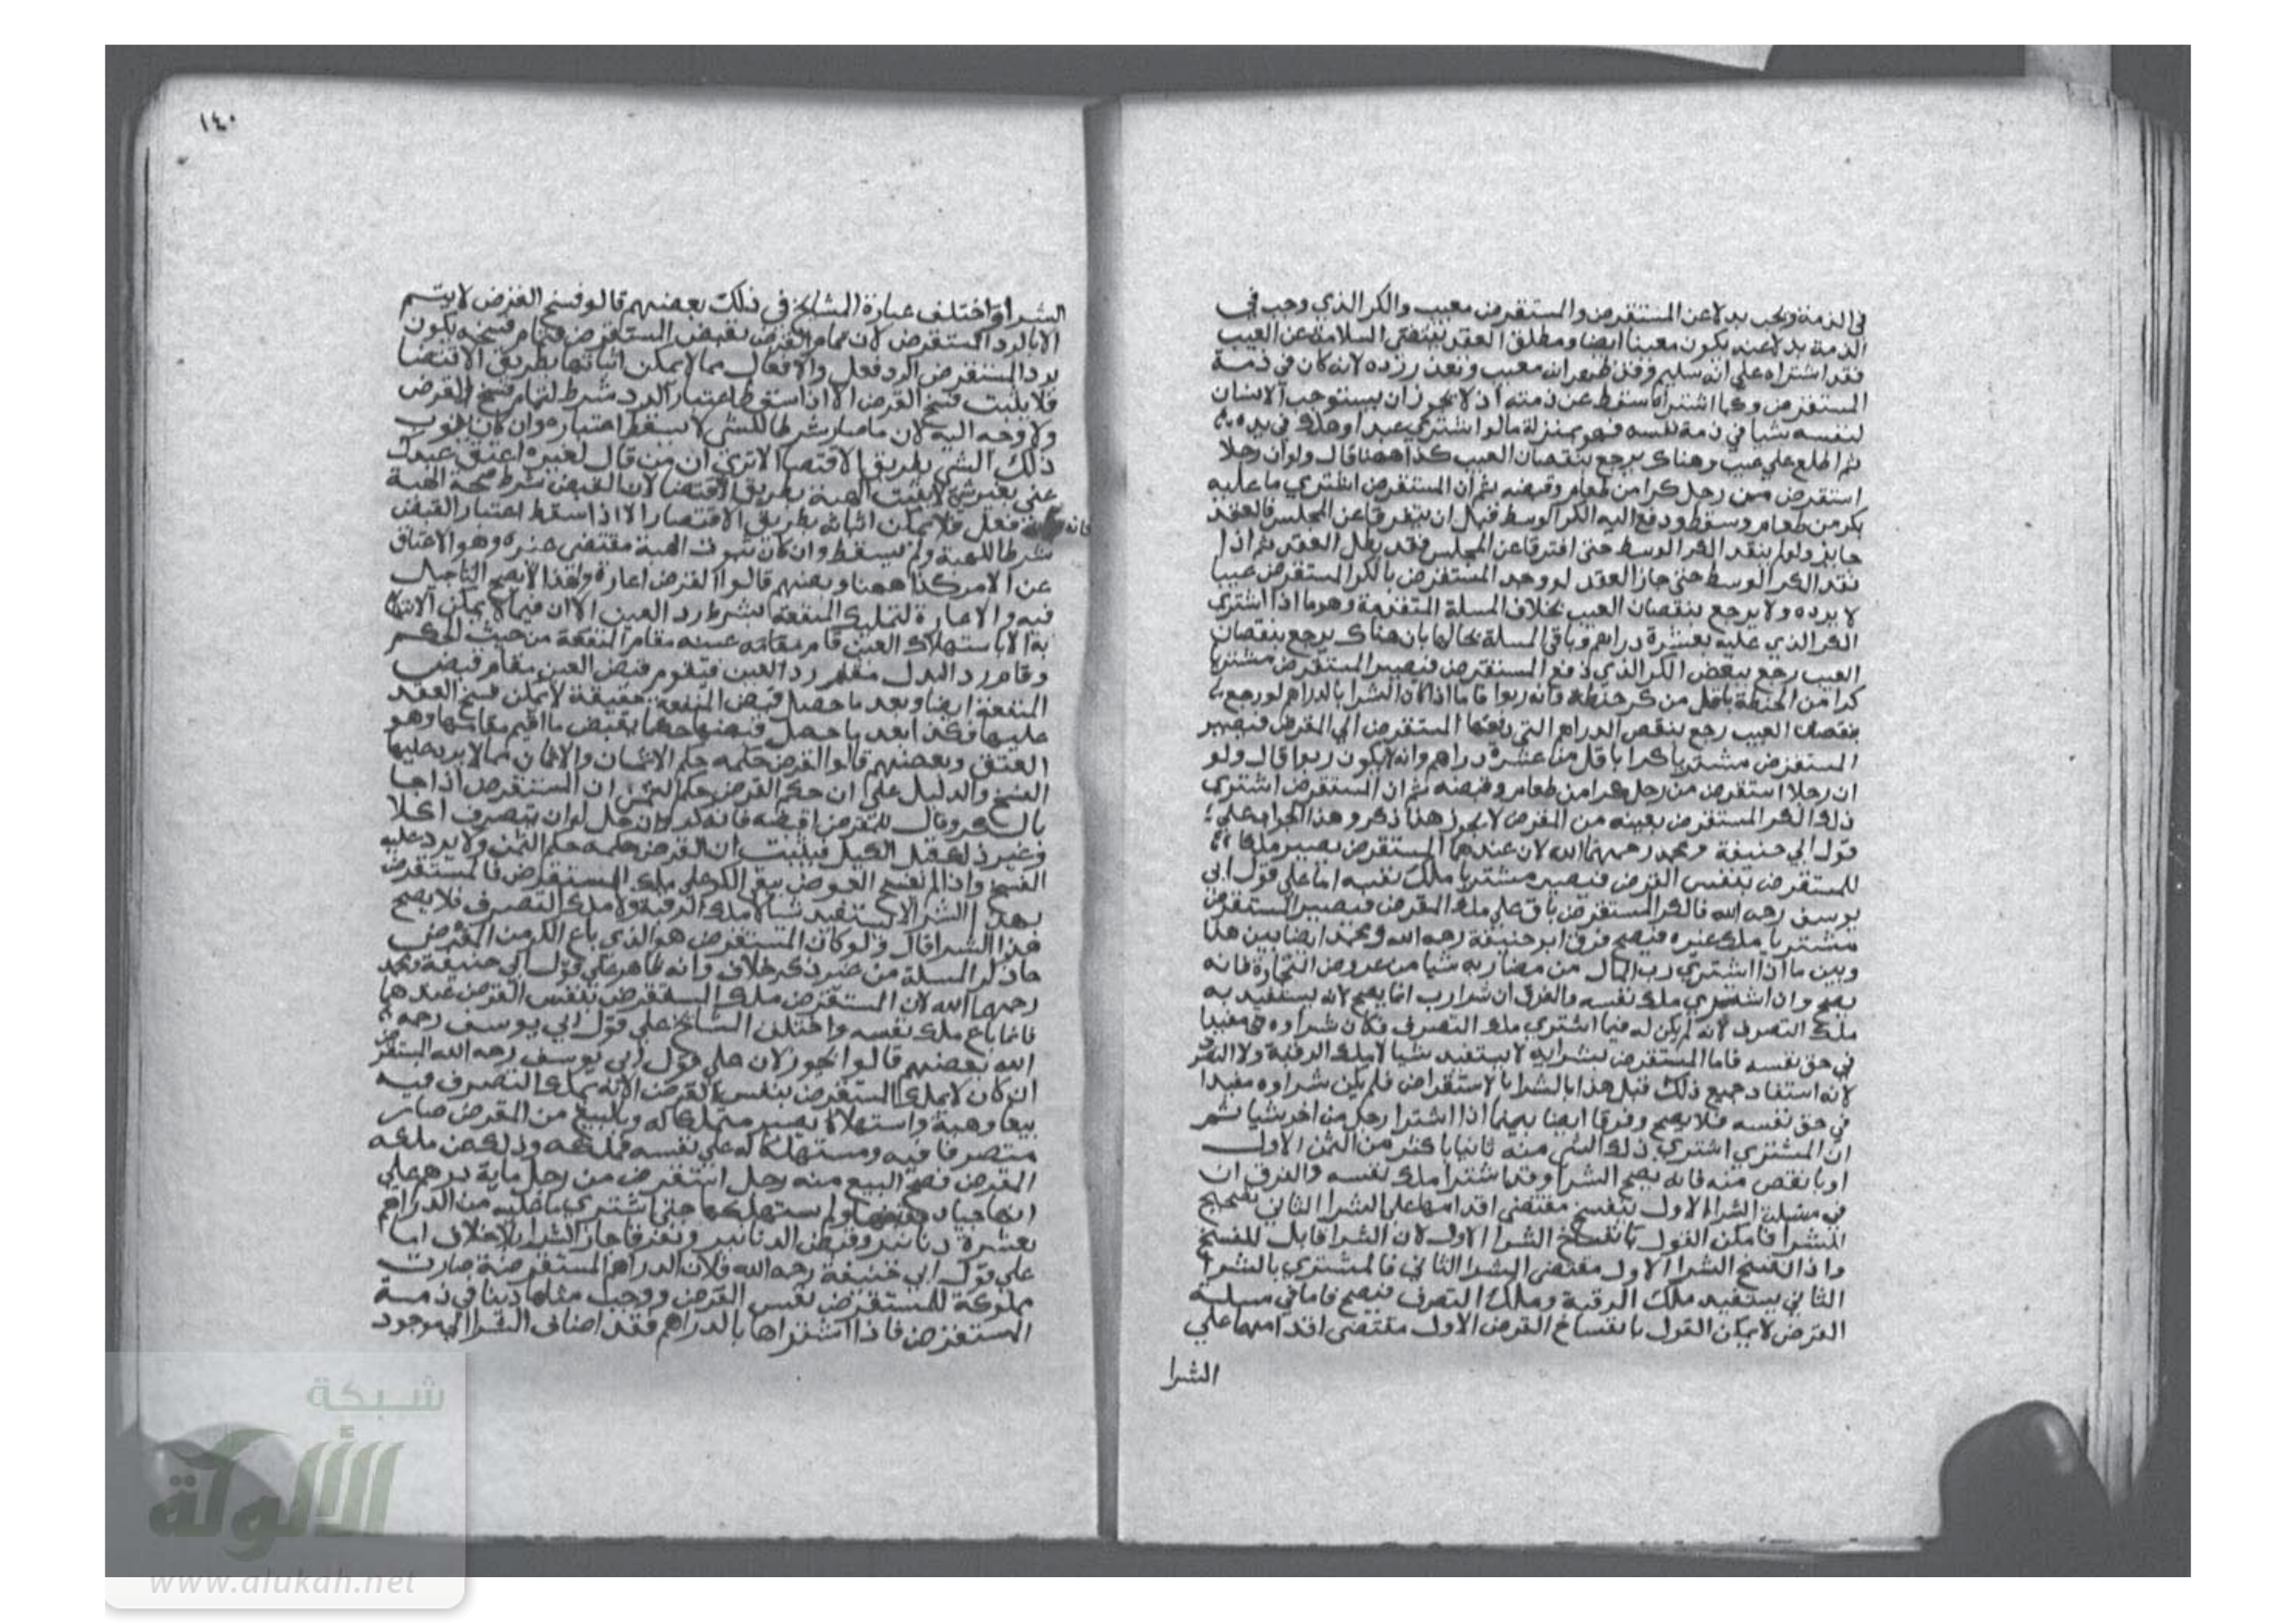 في الذمة وجب بدلا عن المستقرض والمستقرض معيب والكر الذي وجب في
الذمة بدلا عنه يكون معيبا ايضا ومطلق العقد يقتضي السلامة عن العيب
فقد اشتراه على انه سليم وقد ظهر انه معيب وتعذر رده لانه كان في ذمة
المستقرض وكما اشتراه سقط عن ذمته اذ لا يجوز ان يستوجب الانسان
لنفسه شيا في ذمة نفسه فهو بمنزلة ما لو اشترى عبدا وهلك في يده
ثم اطلع على عيب وهناك يرجع بنقصان العيب كذا ههنا قال ولو ان رجلا
استقرض من رجل كرا من طعام وقبضه ثم ان المستقرض اشترى ما عليه
بكر من طعام وسط ودفع اليه الكر الوسط قبل ان يتفرقا عن المجلس فالعقد
جايز ولو لم ينقد الكر الوسط حتى افترقا عن المجلس فقد بطل العقد ثم اذا
نقد الكر الوسط حتى جاز العقد لو وجد المستقرض بالكر المستقرض عيبا
لا يرده ولا يرجع بنقصان العيب بخلاف المسلة المتقدمة وهو ما اذا اشترى
الكر الذي عليه بعشرة دراهم وباقي المسلة بحالها بان هناك يرجع بنقصان
العيب رجع ببعض الكر الذي دفع المستقرض فيصير المستقرض مشتريا
كرا من الحنطة باقل من كر حنطة فانه ربوا فاما اذا كان الشرا بالدراهم لو رجع
بنقصان العيب رجع بنقص الدراهم التي دفعها المستقرض الى المقرض فيصير
المستقرض مشتريا كرا باقل من عشرة دراهم وانه لا يكون ربوا قال ولو
ان رجلا استقرض من رجل كرا من طعام وقبضه ثم ان المستقرض اشترى
ذلك الكر المستقرض بعينه من المقرض لا يجوز هذا ذكر وهذا الجواب على
قول ابي حنيفة ومحمد رحمهما الله لان عندهما المستقرض يصير ملكا
للمستقرض بنفس القرض فيصير مشتريا ملك نفسه اما على قول ابي
يوسف رحمه الله فالكر المستقرض باق على ملك المقرض فيصير المستقرض
مشتريا ملك غيره فيصح فرق ابو حنيفة رحمه الله ومحمد ايضا بين هذا
وبين ما اذا اشترى رب المال من مضاربه شيا من عروض التجارة فانه
يصح وان اشترى ملك نفسه والفرق ان شرا رب انما يصح لانه يستفيد به
ملك التصرف لانه لم يكن له فيما اشترى ملك التصرف فكان شراوه مفيدا
في حق نفسه فاما المستقرض بشرايه لا يستفيد شيا لا ملك الرقبة ولا التصرف
لانه استفاد جميع ذلك قبل هذا بالشرا بالاستقراض فلم يكن شراوه مفيدا
في حق نفسه فلا يصح وفرقا ايضا بينما اذا اشترا رجل من اخر شيا ثم
ان المشتري اشترى ذلك الشي منه ثانيا باكثر من الثمن الاول
او بانقص منه فانه يصح الشرا وقد اشترا ملك نفسه والفرق ان
في مسلة الشرا الاول ينفسخ مقتضى اقدامهما على الشرا الثاني تصحيح
للشرا فامكن القول بانفساخ الشرا الاول لان الشرا قابل للفسخ
واذا انفسخ الشرا الاول مقتضى الشرا الثاني فالمشتري بالشرا
الثاني يستفيد ملك الرقبة وملك التصرف فيصح فاما في مسلة
القرض لا يمكن القول بانفساخ القرض الاول مقتضى اقدامهما على
الشرا
١٤٠
الشرا واختلف عبارة المشايخ في ذلك بعضهم قالوا فسخ القرض لا يتم
الا بالرد المستقرض لان تمام القرض بقبض المستقرض فتمام فسخه يكون
برد المستقرض الرد فعل والافعال مما لا يمكن اثباتها بطريق الاقتضا
فلا يثبت فسخ القرض الا اذا سقط اعتبار الرد شرط لتمام فسخ القرض
ولا وجه اليه لان ما صار شرطا للشي لا يسقط اعتباره وان كان
ذلك الشي بطريق الاقتضا الا ترى ان من قال لغيره اعتق عبدك
عني بغير شي لا يثبت الهبة بطريق الاقتضا لان القبض شرط صحة الهبة
فانه فعل فلا يمكن اثباته بطريق الاقتضا الا اذا سقط اعتبار القبض
شرطا للهبة ولم يسقط وان كان ثبوت الهبة مقتضى غيره وهو الاعتاق
عن الامر كذا ههنا وبعضهم قالوا القرض اعارة ولهذا لا يصح التاجيل
فيه والاعارة لتمليك المنفعة بشرط رد العين الا ان فيما لا يمكن الانتفاع
به الا باستهلاك العين قام عينه مقام المنفعة من حيث الحكم
وقام رد البدل مقام رد العين فيقوم قبض العين مقام قبض
المنفعة ايضا وبعد ما حصل قبض المنفعة حقيقة لا يمكن فسخ العقد
عليها فكذا بعد ما حصل قبضها حكما بقبض ما اقيم مقامها وهو
العين وبعضهم قالوا القرض حكمه حكم الاثمان والاثمان مما لا يرد عليها
الفسخ والدليل على ان حكم القرض حكم الثمن ان المستقرض اذا جا
بالكر وقال للمقرض اقبضه فانه كر كان حل له ان يتصرف اكلا
وغير ذلك قبل الكيل فيثبت ان القرض حكمه حكم الثمن ولا يرد عليه
الفسخ واذا لم ينفسخ القرض بقي الكر على ملك المستقرض فالمستقرض
بهذا الشرا لا يستفيد شيا لا ملك الرقبة ولا ملك التصرف فلا يصح
هذا الشرا قال ولو كان المستقرض هو الذي باع الكر من المقرض
جاز ذكر المسلة من غير ذكر خلاف وانه ظاهر على قول ابي حنيفة ومحمد
رحمهما الله لان المستقرض ملك المستقرض بنفس القرض عندهما
فانما باع ملك نفسه واختلف المشايخ على قول ابي يوسف رحمه
الله بعضهم قالوا يجوز لان على قول ابي يوسف رحمه الله المستقرض
ان كان لا يملك المستقرض بنفس القرض الا انه يملك التصرف فيه
بيعا وهبة واستهلاكا يصير متملكا له وبالبيع من المقرض صار
متصرفا فيه ومستهلكا له على نفسه فملكه وذلك عن ملكه
المقرض فصح البيع منه رجل استقرض من رجل ماية درهم على
انها جياد وقبضها ولم يستهلكها حتى اشترى ما عليه من الدراهم
بعشرة دنانير وقبض الدنانير وتفرقا جاز الشرا بلا خلاف اما
على قول ابي حنيفة رحمه الله فلان الدراهم المستقرضة صارت
مملوكة للمستقرض بنفس القرض ووجب مثلها دينا في ذمة
المستقرض فاذا اشتراها بالدراهم فقد اضاف الشرا الى موجود
شبكة
الألوكة
www.alukah.net